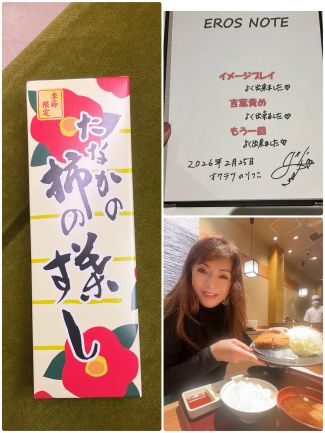 季節
限定
たなかの
柿の葉
すし
EROS NOTE
イメージプレイ
よく出来ました♡
言葉責め
よく出来ました♡
もう一回
よく出来ました♡
2026年2月25日